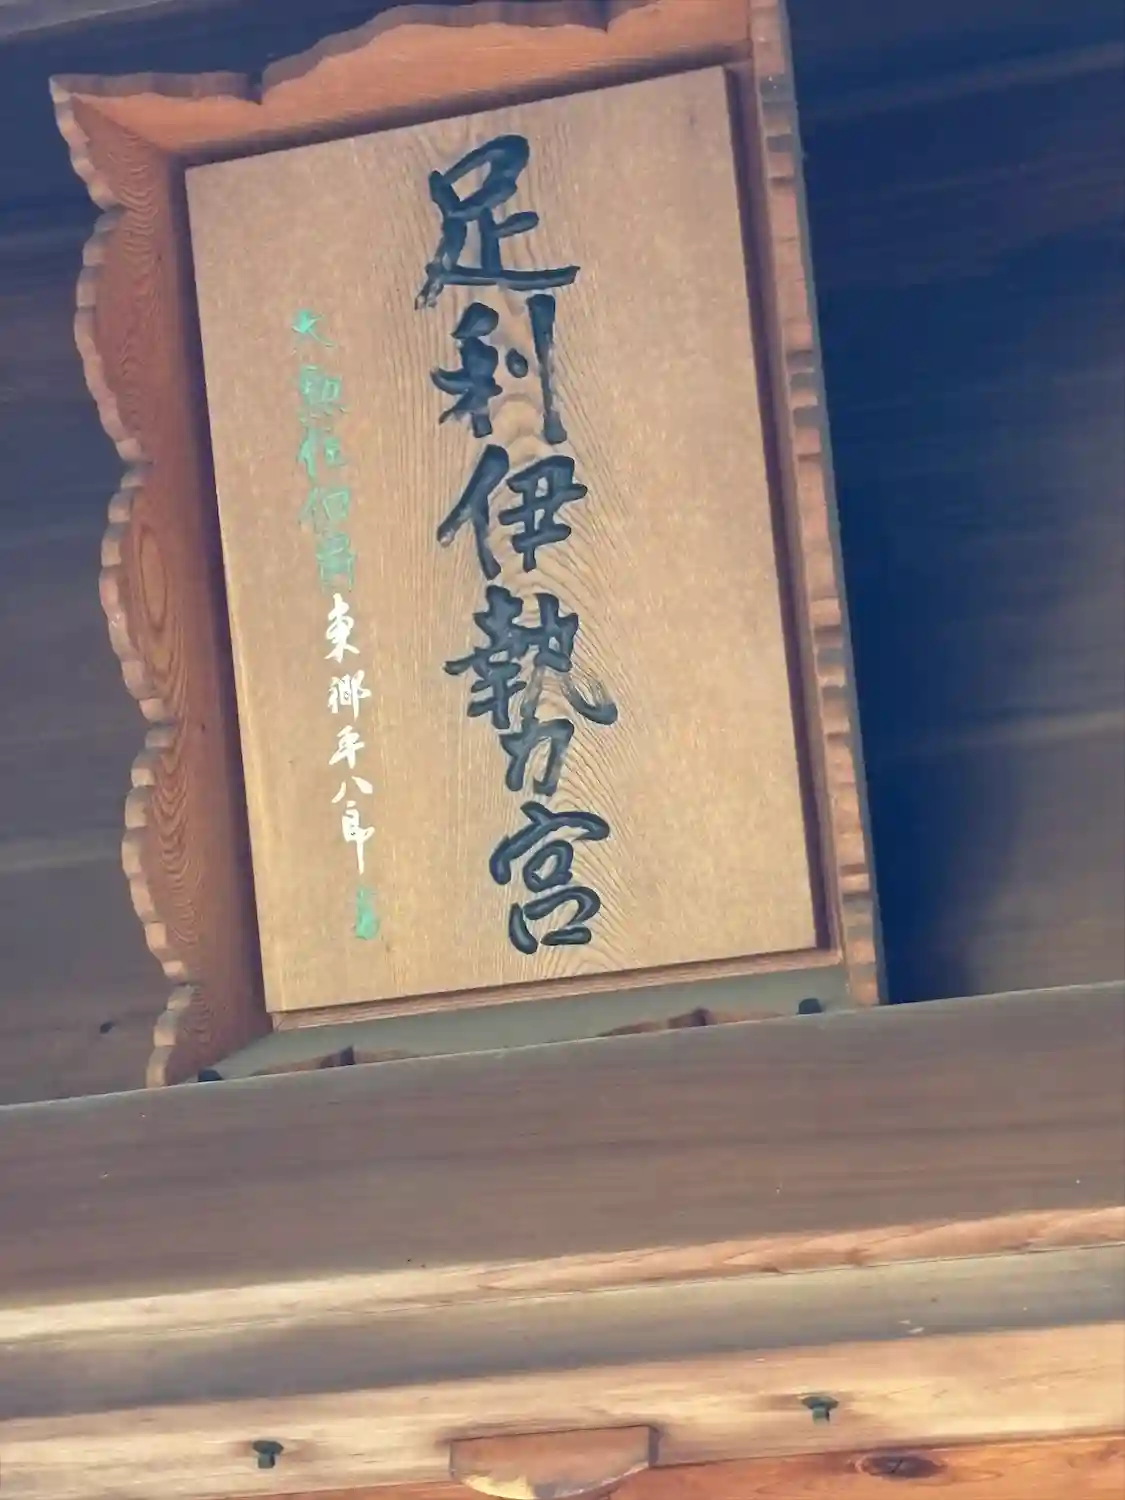 足利伊勢宮
大勲位伯爵東郷平八郎書